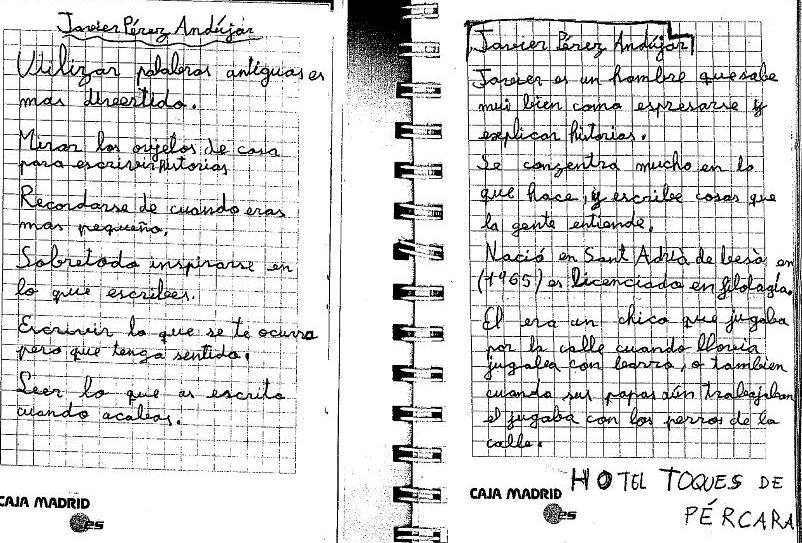 Javier Pérez Andújar
Utilizar palabras antiguas es
mas divertido.
Mirar los ovjetos de casa
para escrivir historias
Recordarse de cuando eras
mas pequeño.
Sobretodo inspirarse en
lo que escribes.
Escrivir lo que se te ocurra
pero que tenga sentido.
Leer lo que as escrito
cuando acabas.
CAJA MADRID
es
Javier Pérez Andújar
Javier es un hombre que sabe
mui bien como espresarse y
explicar historias.
Se conzentra mucho en lo
que hace, y escribe cosas que
la gente entiende.
Nació en Sant Adrià de besòs en
(1965) es licenciado en filologia.
El era un chico que jugaba
por la calle cuando llovia
jugaba con barro, o tambien
cuando sus papas aún trabajaban
el jugaba con los perros de la
calle.
CAJA MADRID
es
HOTEL TOQUES DE
PÉRCARA